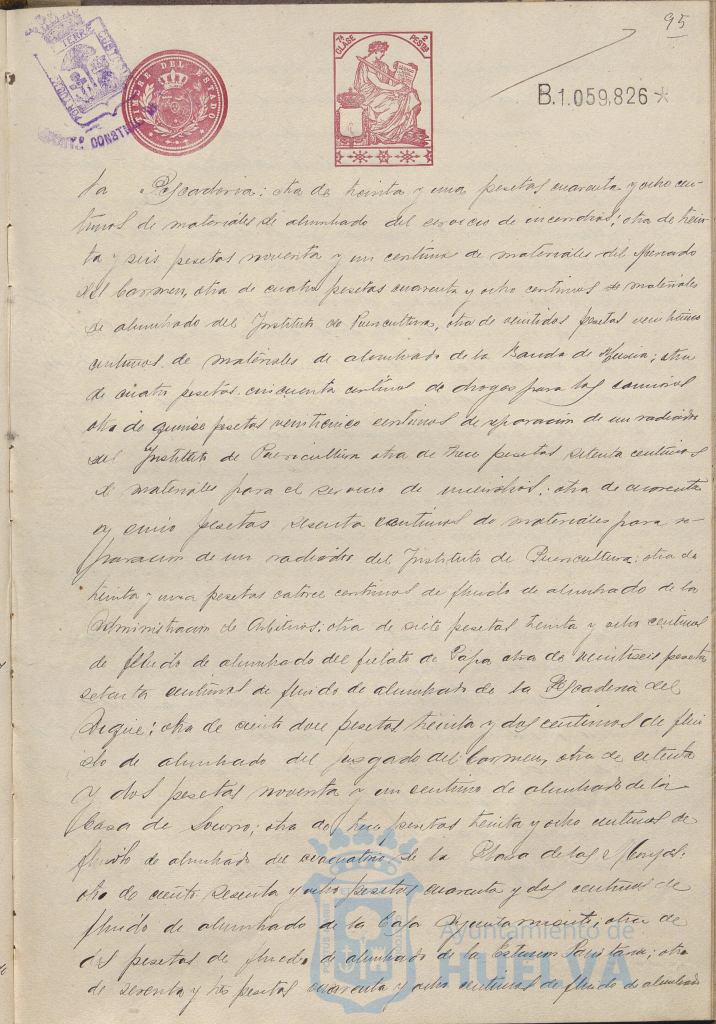 95
TIMBRE DEL ESTADO
7ª CLASE 2 PESTAS
B.1.059,826 *
la Pescaderia: otra de treinta y una pesetas cuarenta y ocho cen-
timos de materiales de alumbrado del servicio de incendios; otra de trein-
ta y seis pesetas noventa y un centimo de materiales del Mercado
del Carmen, otra de cuatro pesetas cuarenta y ocho centimos de materiales
de alumbrado del Instituto de Puericultura, otra de veintidos pesetas veintiun
centimos de materiales de alumbrado de la Banda de Musica; otra
de cuatro pesetas cincuenta centimos de drogas para las
otra de quince pesetas veinticinco centimos de reparacion de un radiador
del Instituto de Puericultura otra de trece pesetas setenta centimos
de materiales para el servicio de incendios; otra de cuarenta
y cinco pesetas sesenta centimos de materiales para re-
paracion de un radiador del Instituto de Puericultura: otra de
treinta y una pesetas catorce centimos de fluido de alumbrado de la
Administracion de Arbitrios; otra de siete pesetas treinta y ocho centimos
de fluido de alumbrado del fielato de otra de veintiseis pesetas
setenta centimos de fluido de alumbrado de la Pescaderia del
Dique; otra de ciento doce pesetas treinta y dos centimos de flui
do de alumbrado del juzgado del Carmen, otra de setenta
y dos pesetas noventa y un centimo de alumbrado de la
Casa de Socorro; otra de trece pesetas treinta y ocho centimos de
fluido de alumbrado del evacuatorio de la Plaza de las Monjas;
otra de ciento sesenta y ocho pesetas cuarenta y dos centimos de
fluido de alumbrado de la Casa Ayuntamiento; otra de
dos pesetas de fluido de alumbrado de la Estacion Sanitaria; otra
de sesenta y tres pesetas cuarenta y ocho centimos de fluido de alumbrado
Ayuntamiento de
HUELVA